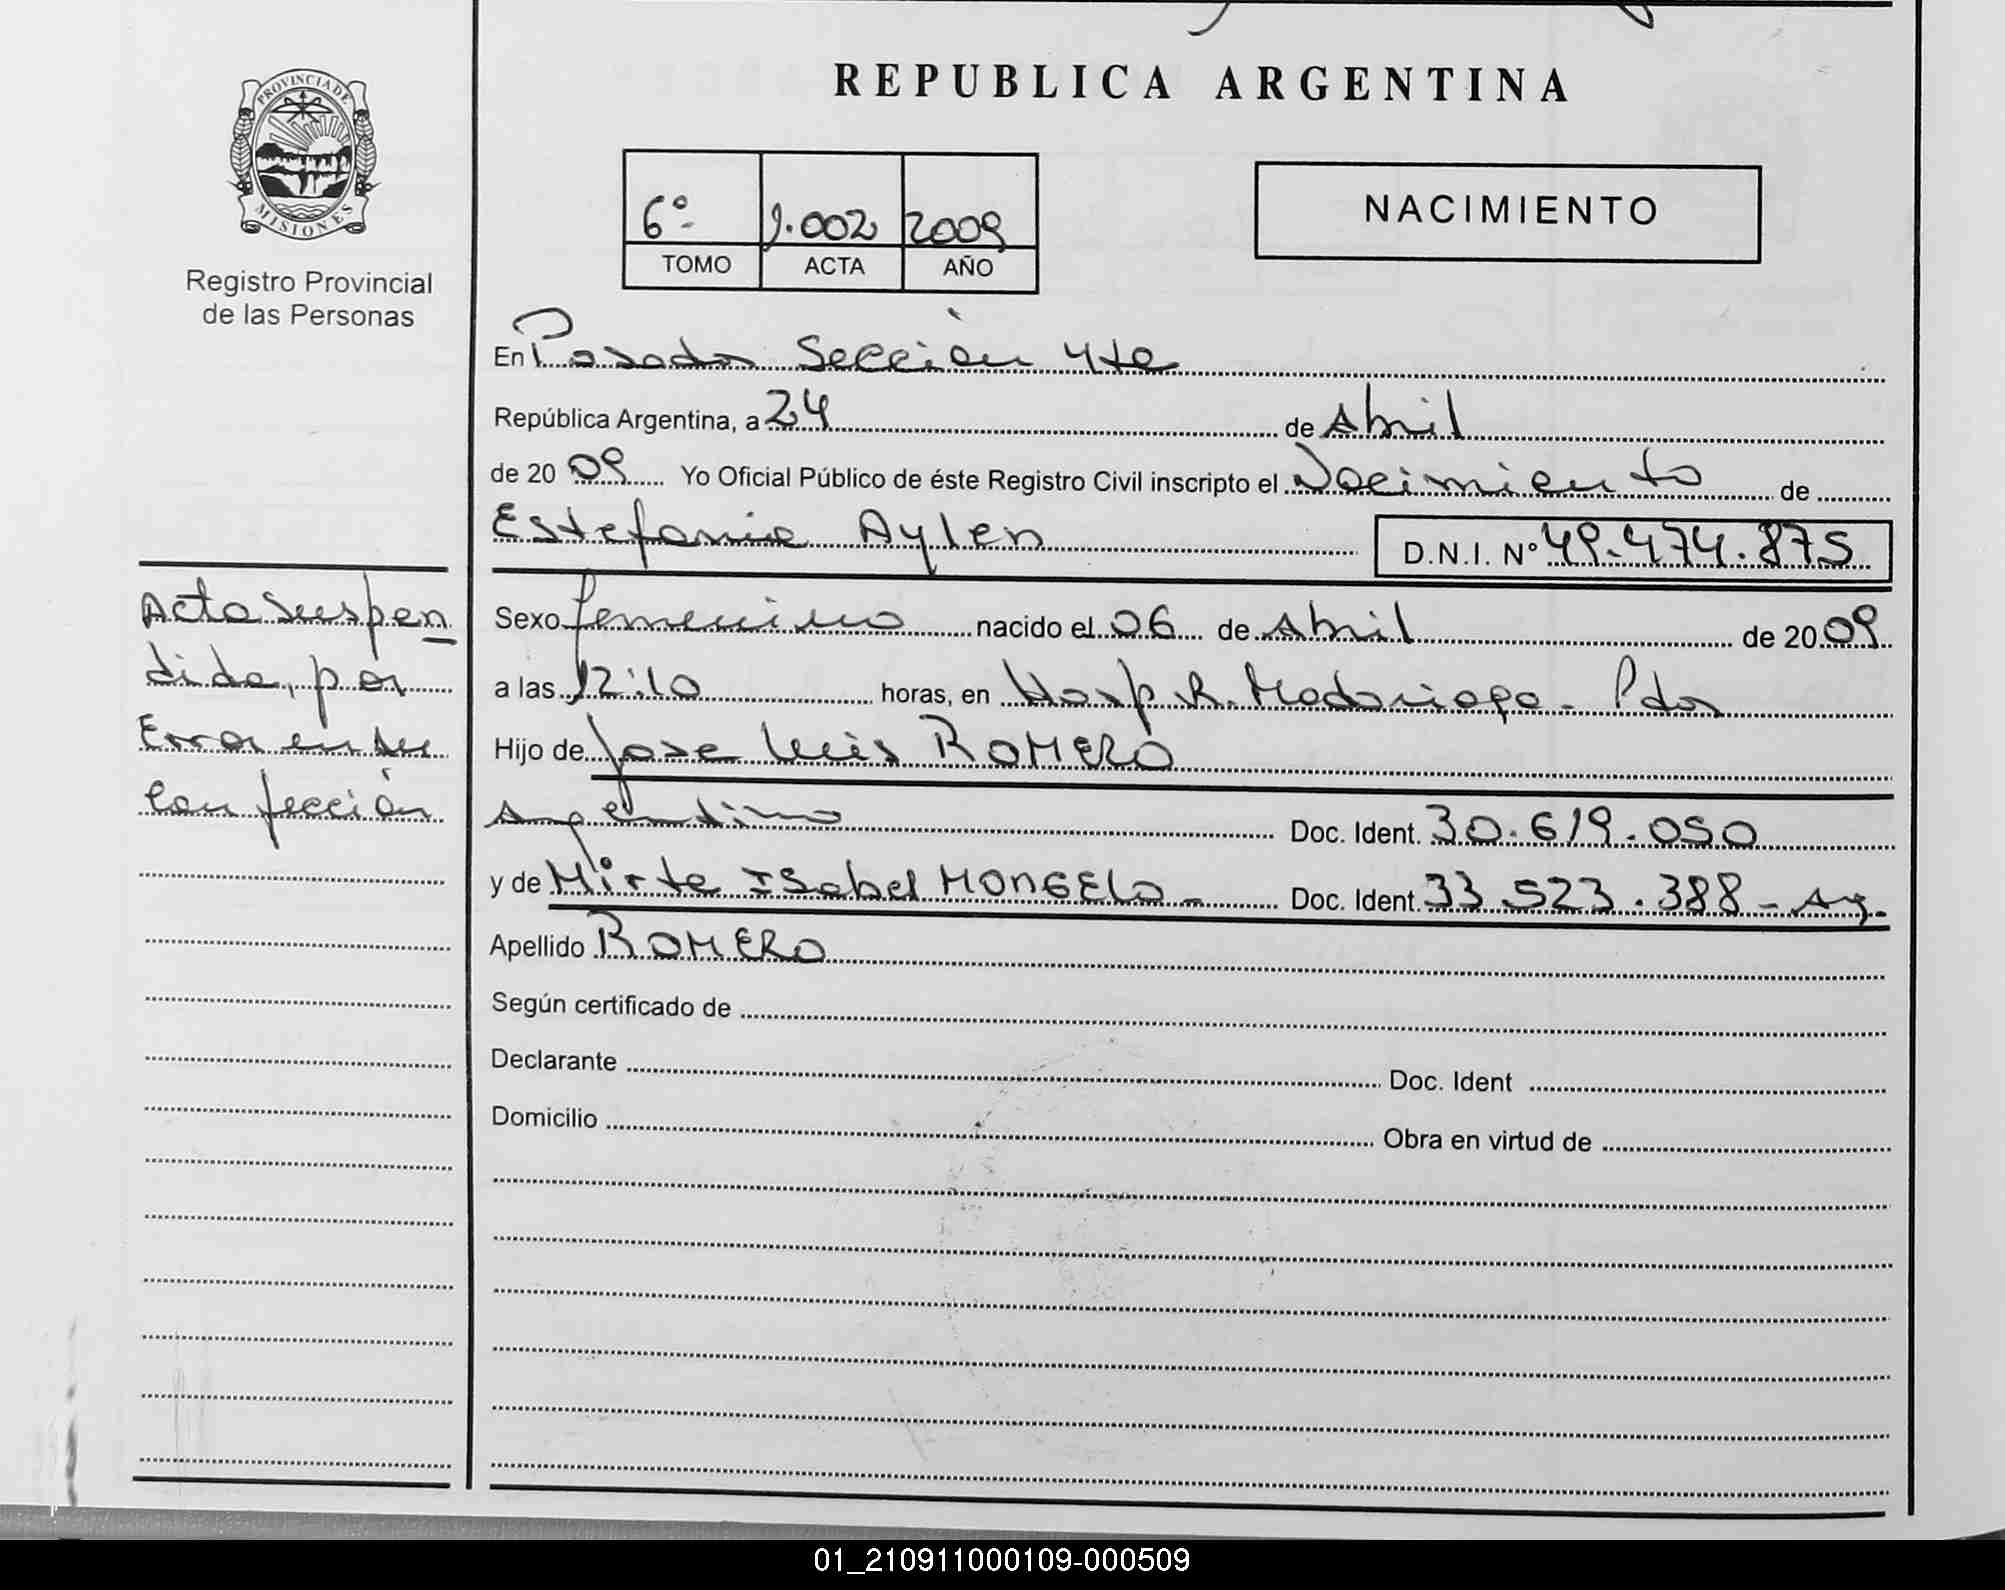 REPUBLICA ARGENTINA
PROVINCIA DE
MISIONES
Registro Provincial
de las Personas
6º 1.002 2009
TOMO ACTA AÑO
NACIMIENTO
En Posadas Sección 4ta
República Argentina, a 24 de Abril
de 20 09 Yo Oficial Público de éste Registro Civil inscripto el Nacimiento de
Estefania Aylen D.N.I. Nº 49.474.875
Sexo femenino nacido el 06 de Abril de 20 09
a las 12:10 horas, en Hosp. R. Madariaga - Pdas
Hijo de Jose Luis ROMERO
Argentino Doc. Ident. 30.619.050
y de Mirta Isabel MONGELO - Doc. Ident. 33.523.388 - Arg.
Apellido ROMERO
Según certificado de
Declarante Doc. Ident
Domicilio Obra en virtud de
Acta Suspen
dida, por
Error en su
confección
01_210911000109-000509